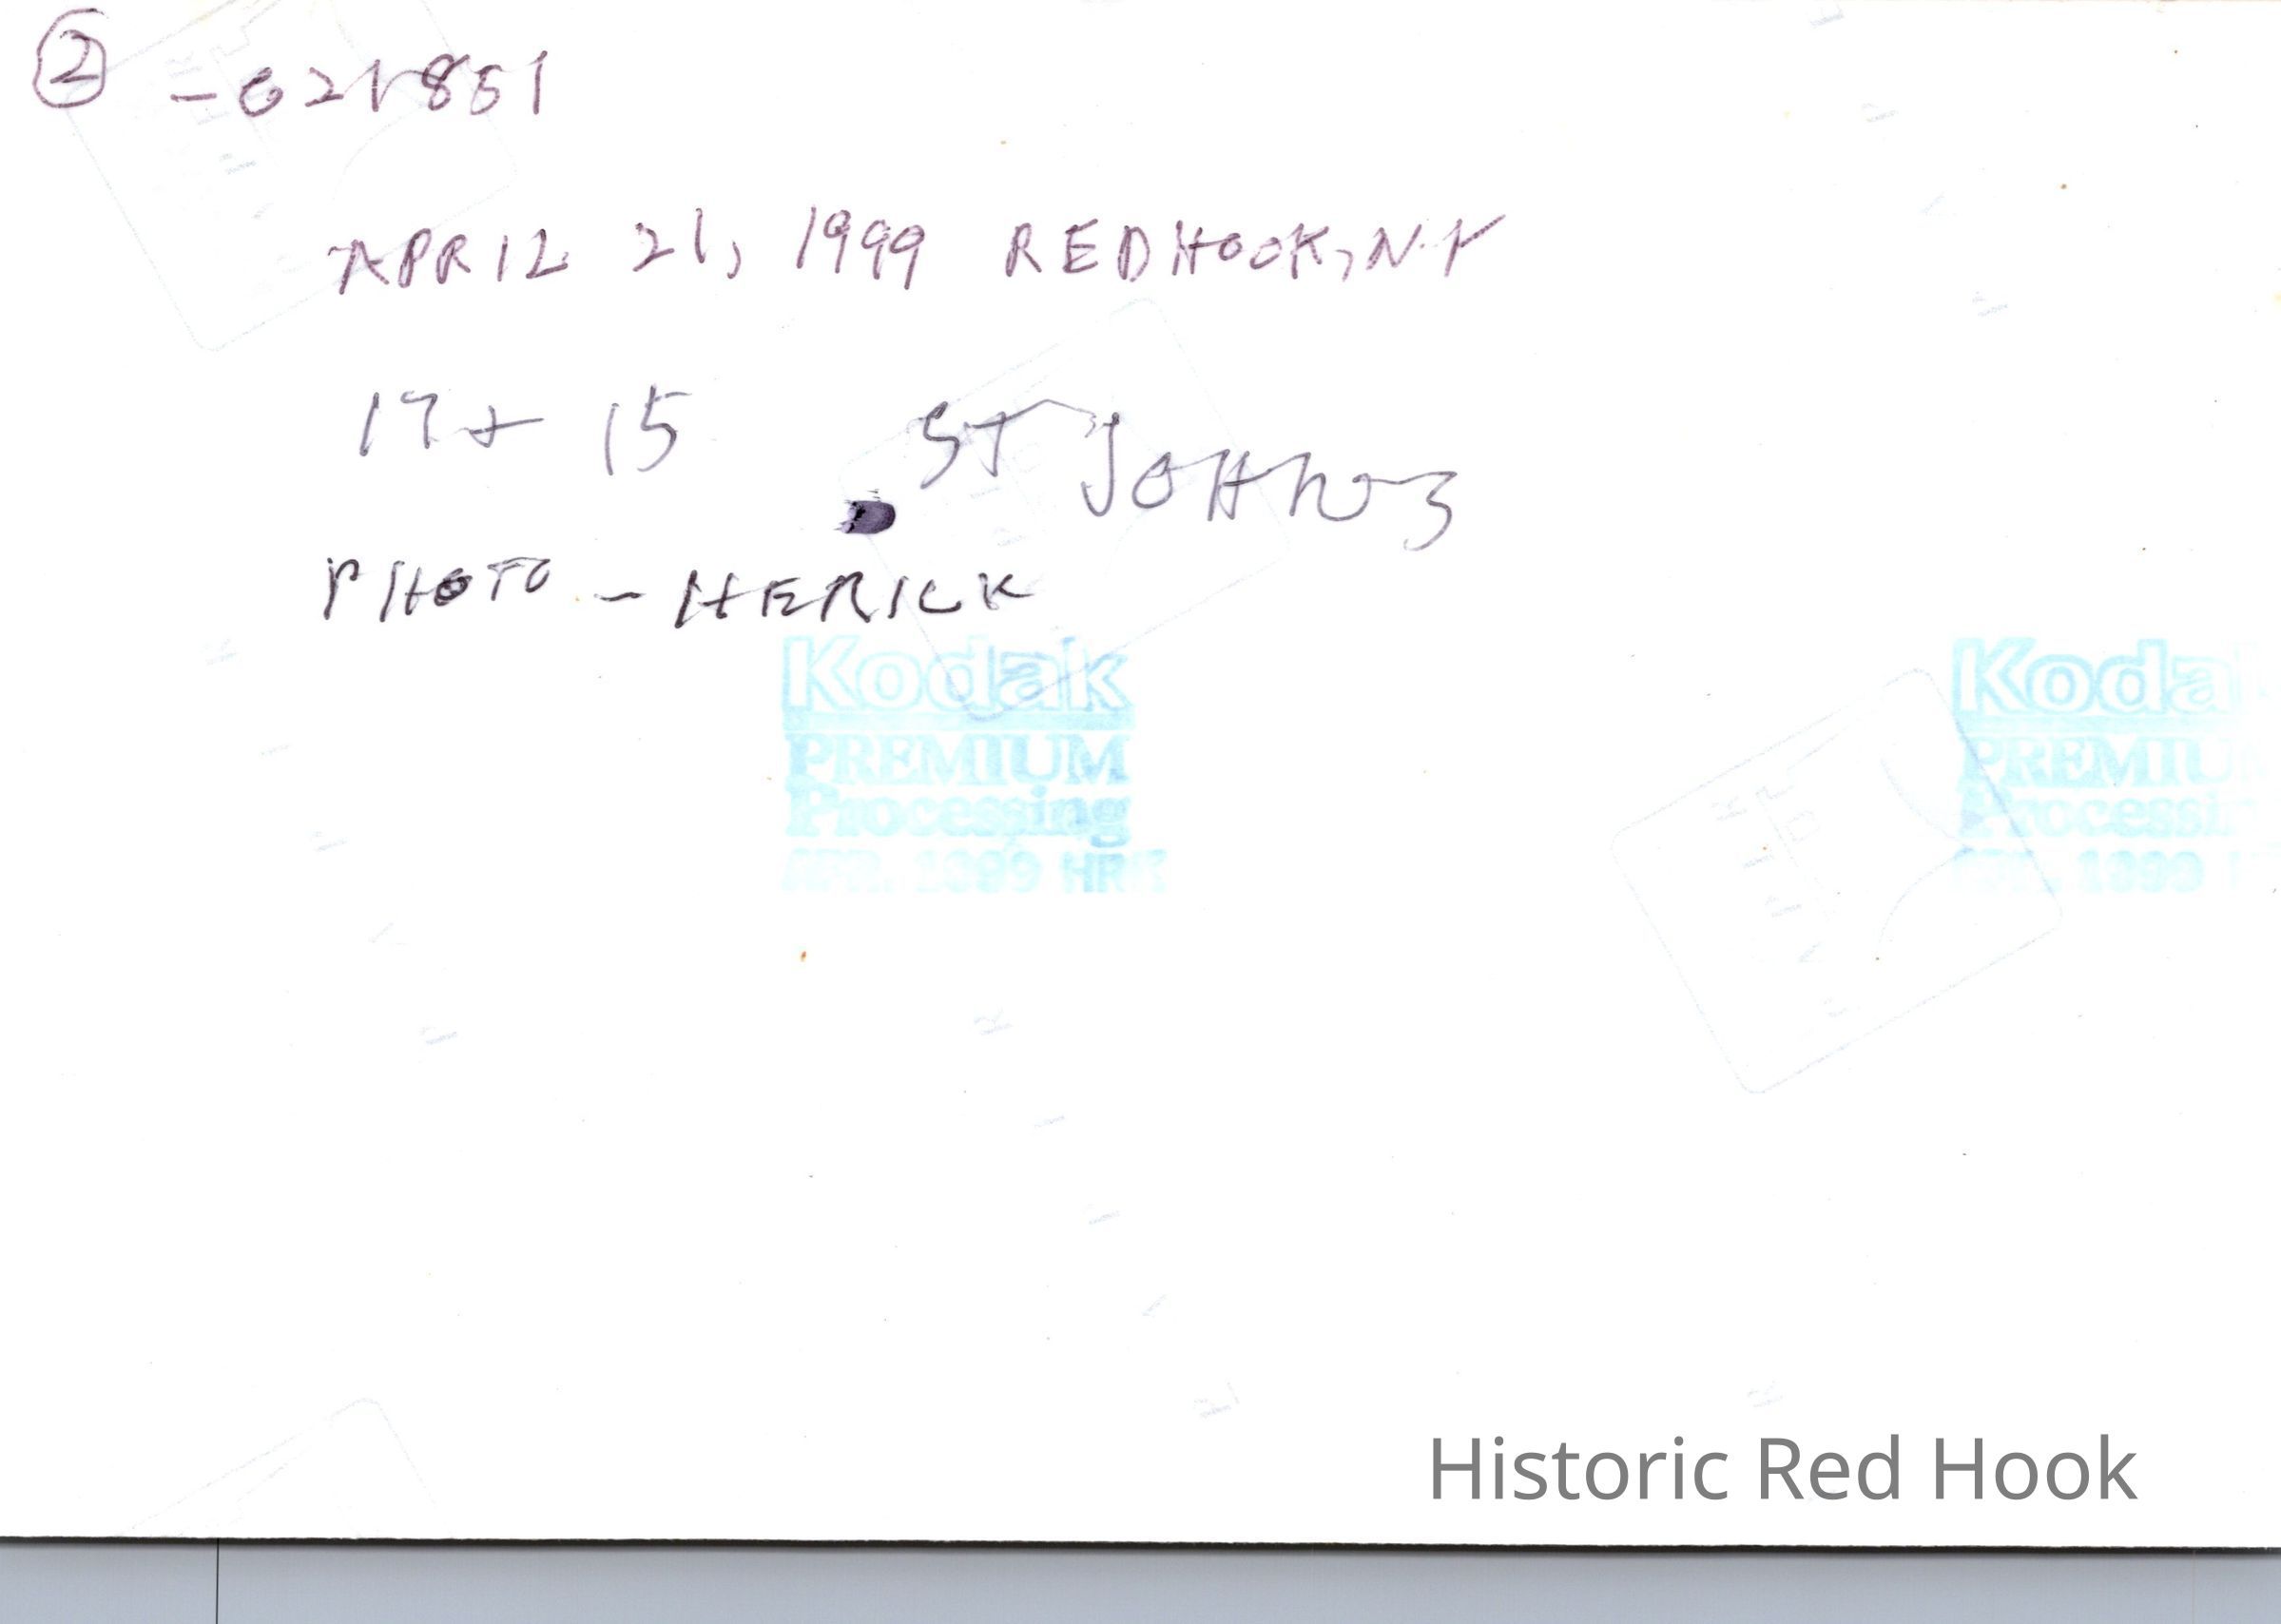 ② -021851
APRIL 21, 1999 REDHOOK, N.Y
17 + 15 ST JOHNS
PHOTO - HERICK
Kodak Koda
PREMIUM PREMIU
Processing Processin
APR. 1999 HRK APR. 1999
Historic Red Hook